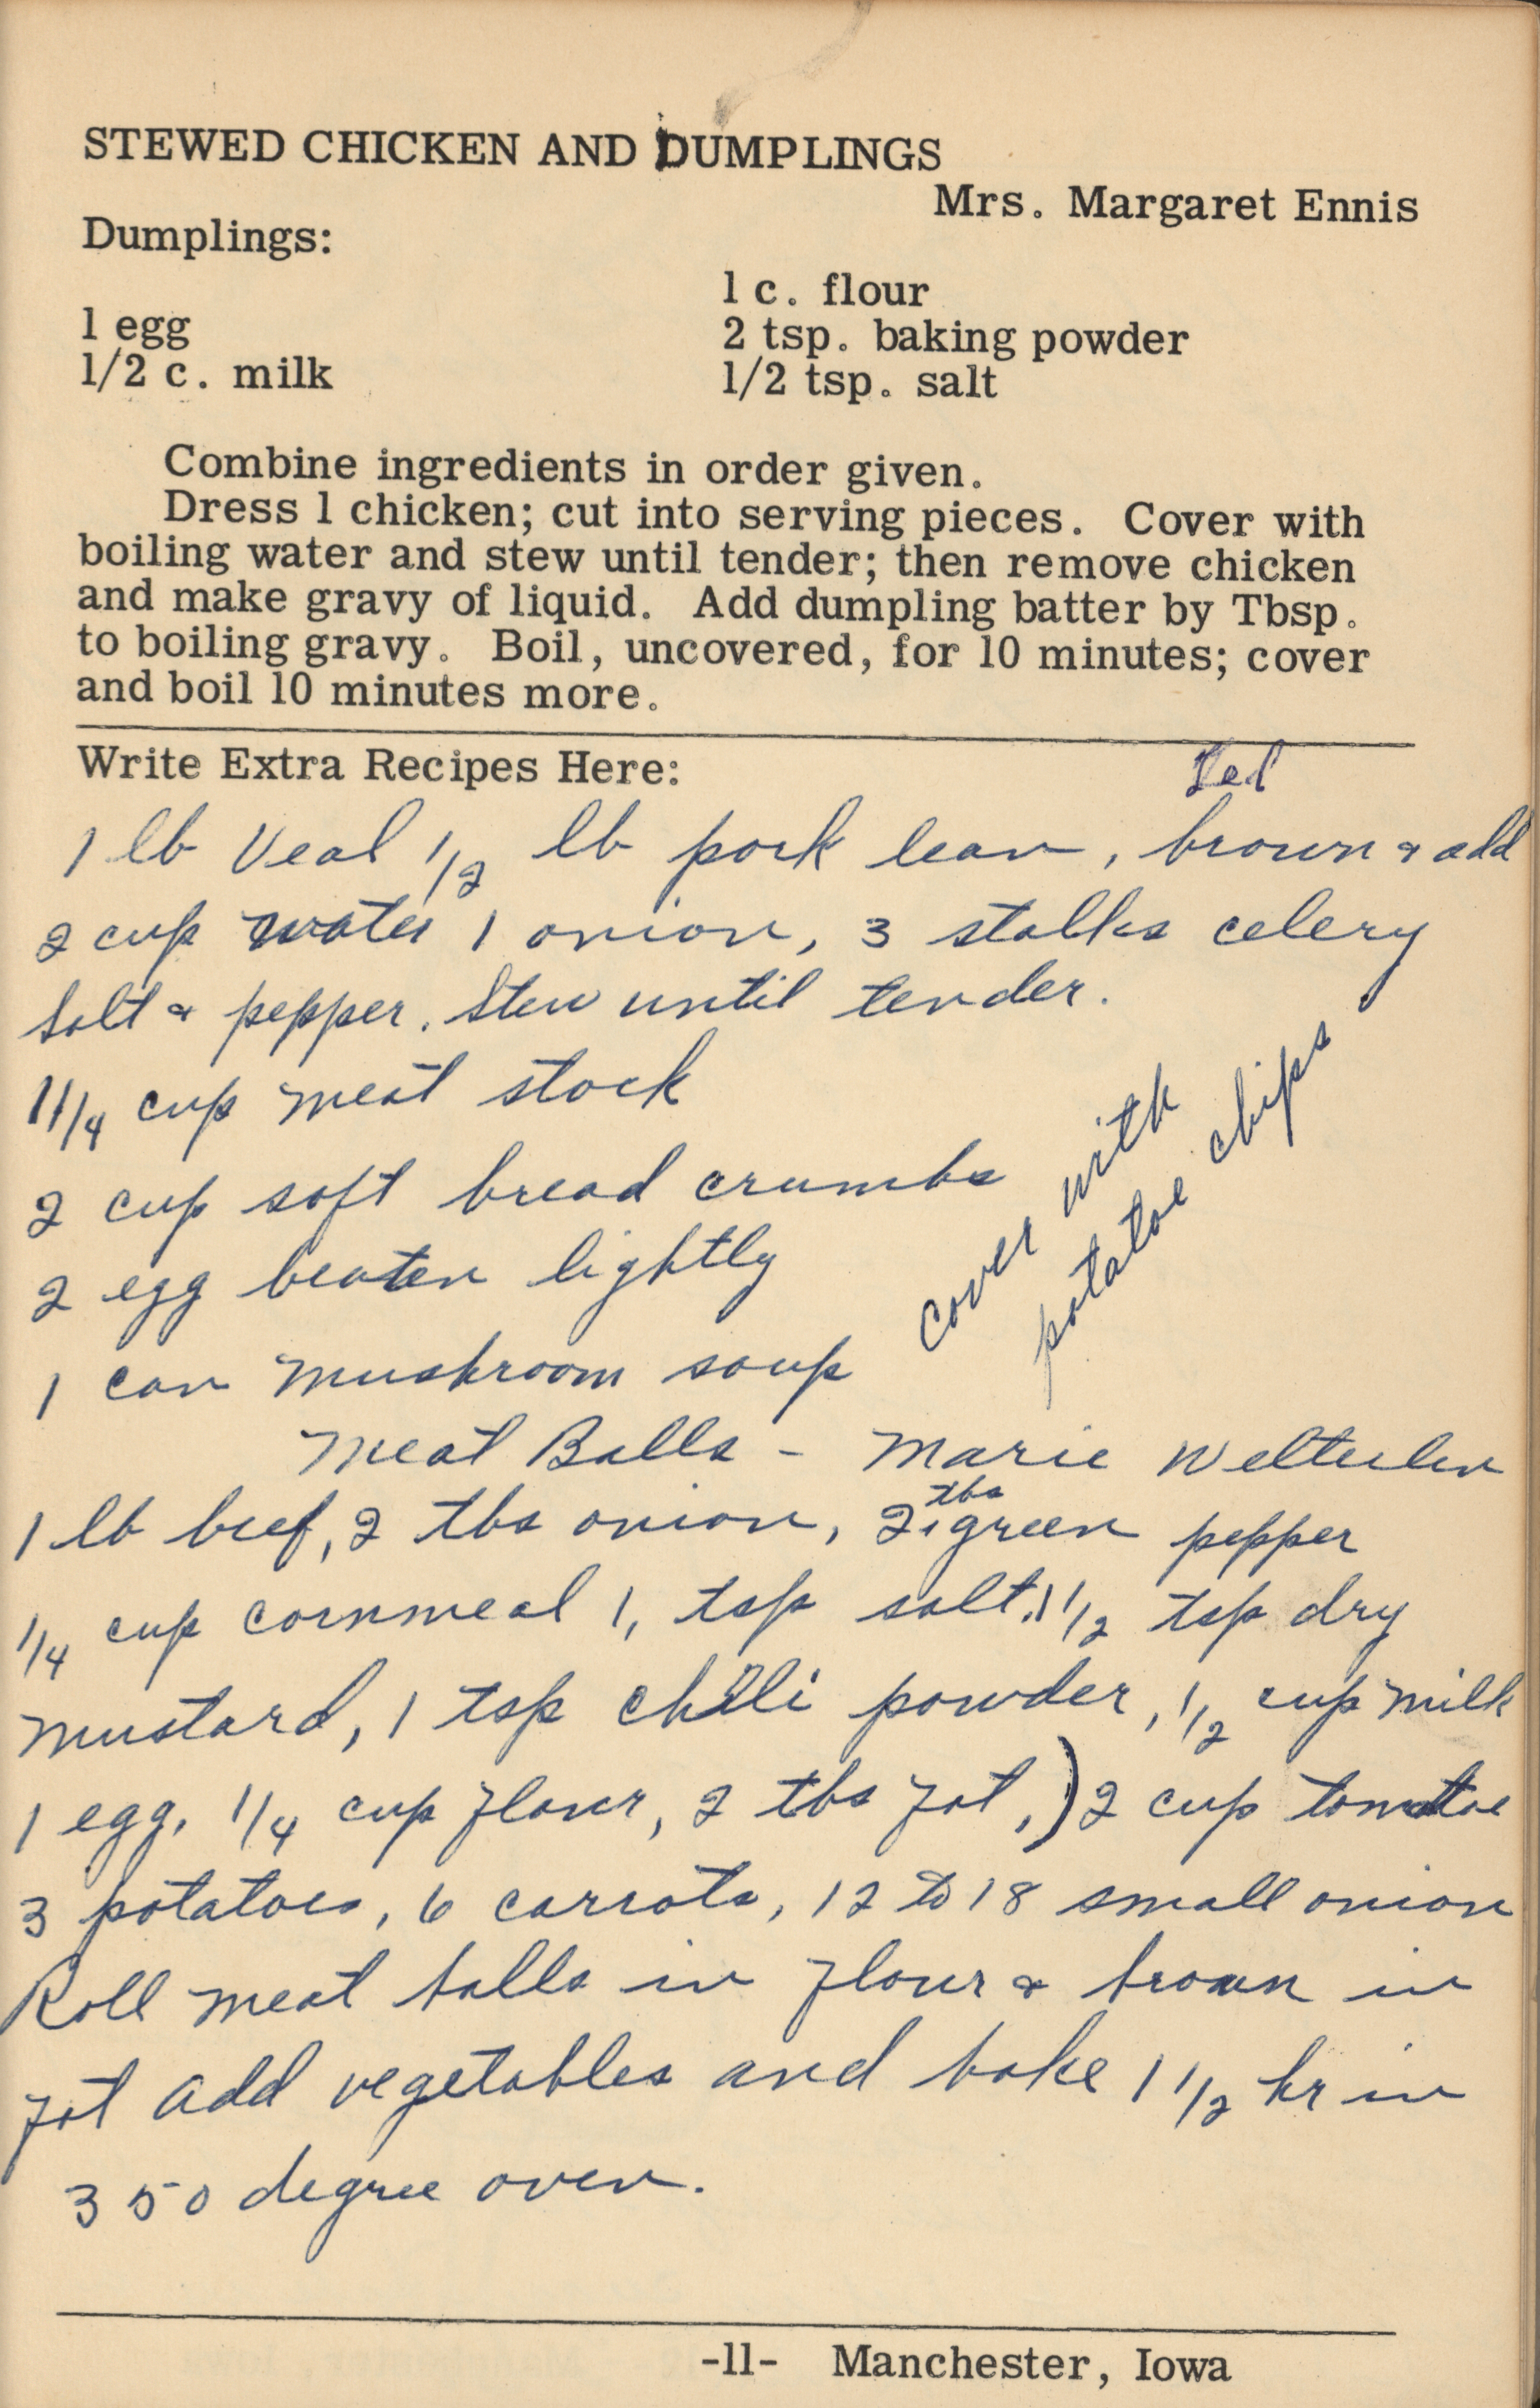 STEWED CHICKEN AND DUMPLINGS
Mrs. Margaret Ennis
Dumplings:
1 c. flour
1 egg
2 tsp. baking powder
1/2 c. milk
1/2 tsp. salt
Combine ingredients in order given.
Dress 1 chicken; cut into serving pieces. Cover with
boiling water and stew until tender; then remove chicken
and make gravy of liquid. Add dumpling batter by Tbsp.
to boiling gravy. Boil, uncovered, for 10 minutes; cover
and boil 10 minutes more.
Write Extra Recipes Here:
1 lb Veal 1/2 lb pork lean, brown & add
2 cup water 1 onion, 3 stalks celery
Salt & pepper. Stew until tender.
1 1/4 cup meat stock
2 cup soft bread crumbs
2 egg beaten lightly
1 can mushroom soup
Cover with
potatoe chips
Meat Balls - Marie
1 lb beef, 2 tbs onion, 2 tbs green pepper
1/4 cup cornmeal 1, tsp salt, 1 1/2 tsp dry
mustard, 1 tsp chili powder, 1/2 cup milk
1 egg, 1/4 cup flour, 2 tbs fat,) 2 cup tomatoe
3 potatoes, 6 carrots, 12 to 18 small onion
Roll meat balls in flour & brown in
fat add vegetables and bake 1 1/2 hr in
350 degree oven.
-11- Manchester, Iowa